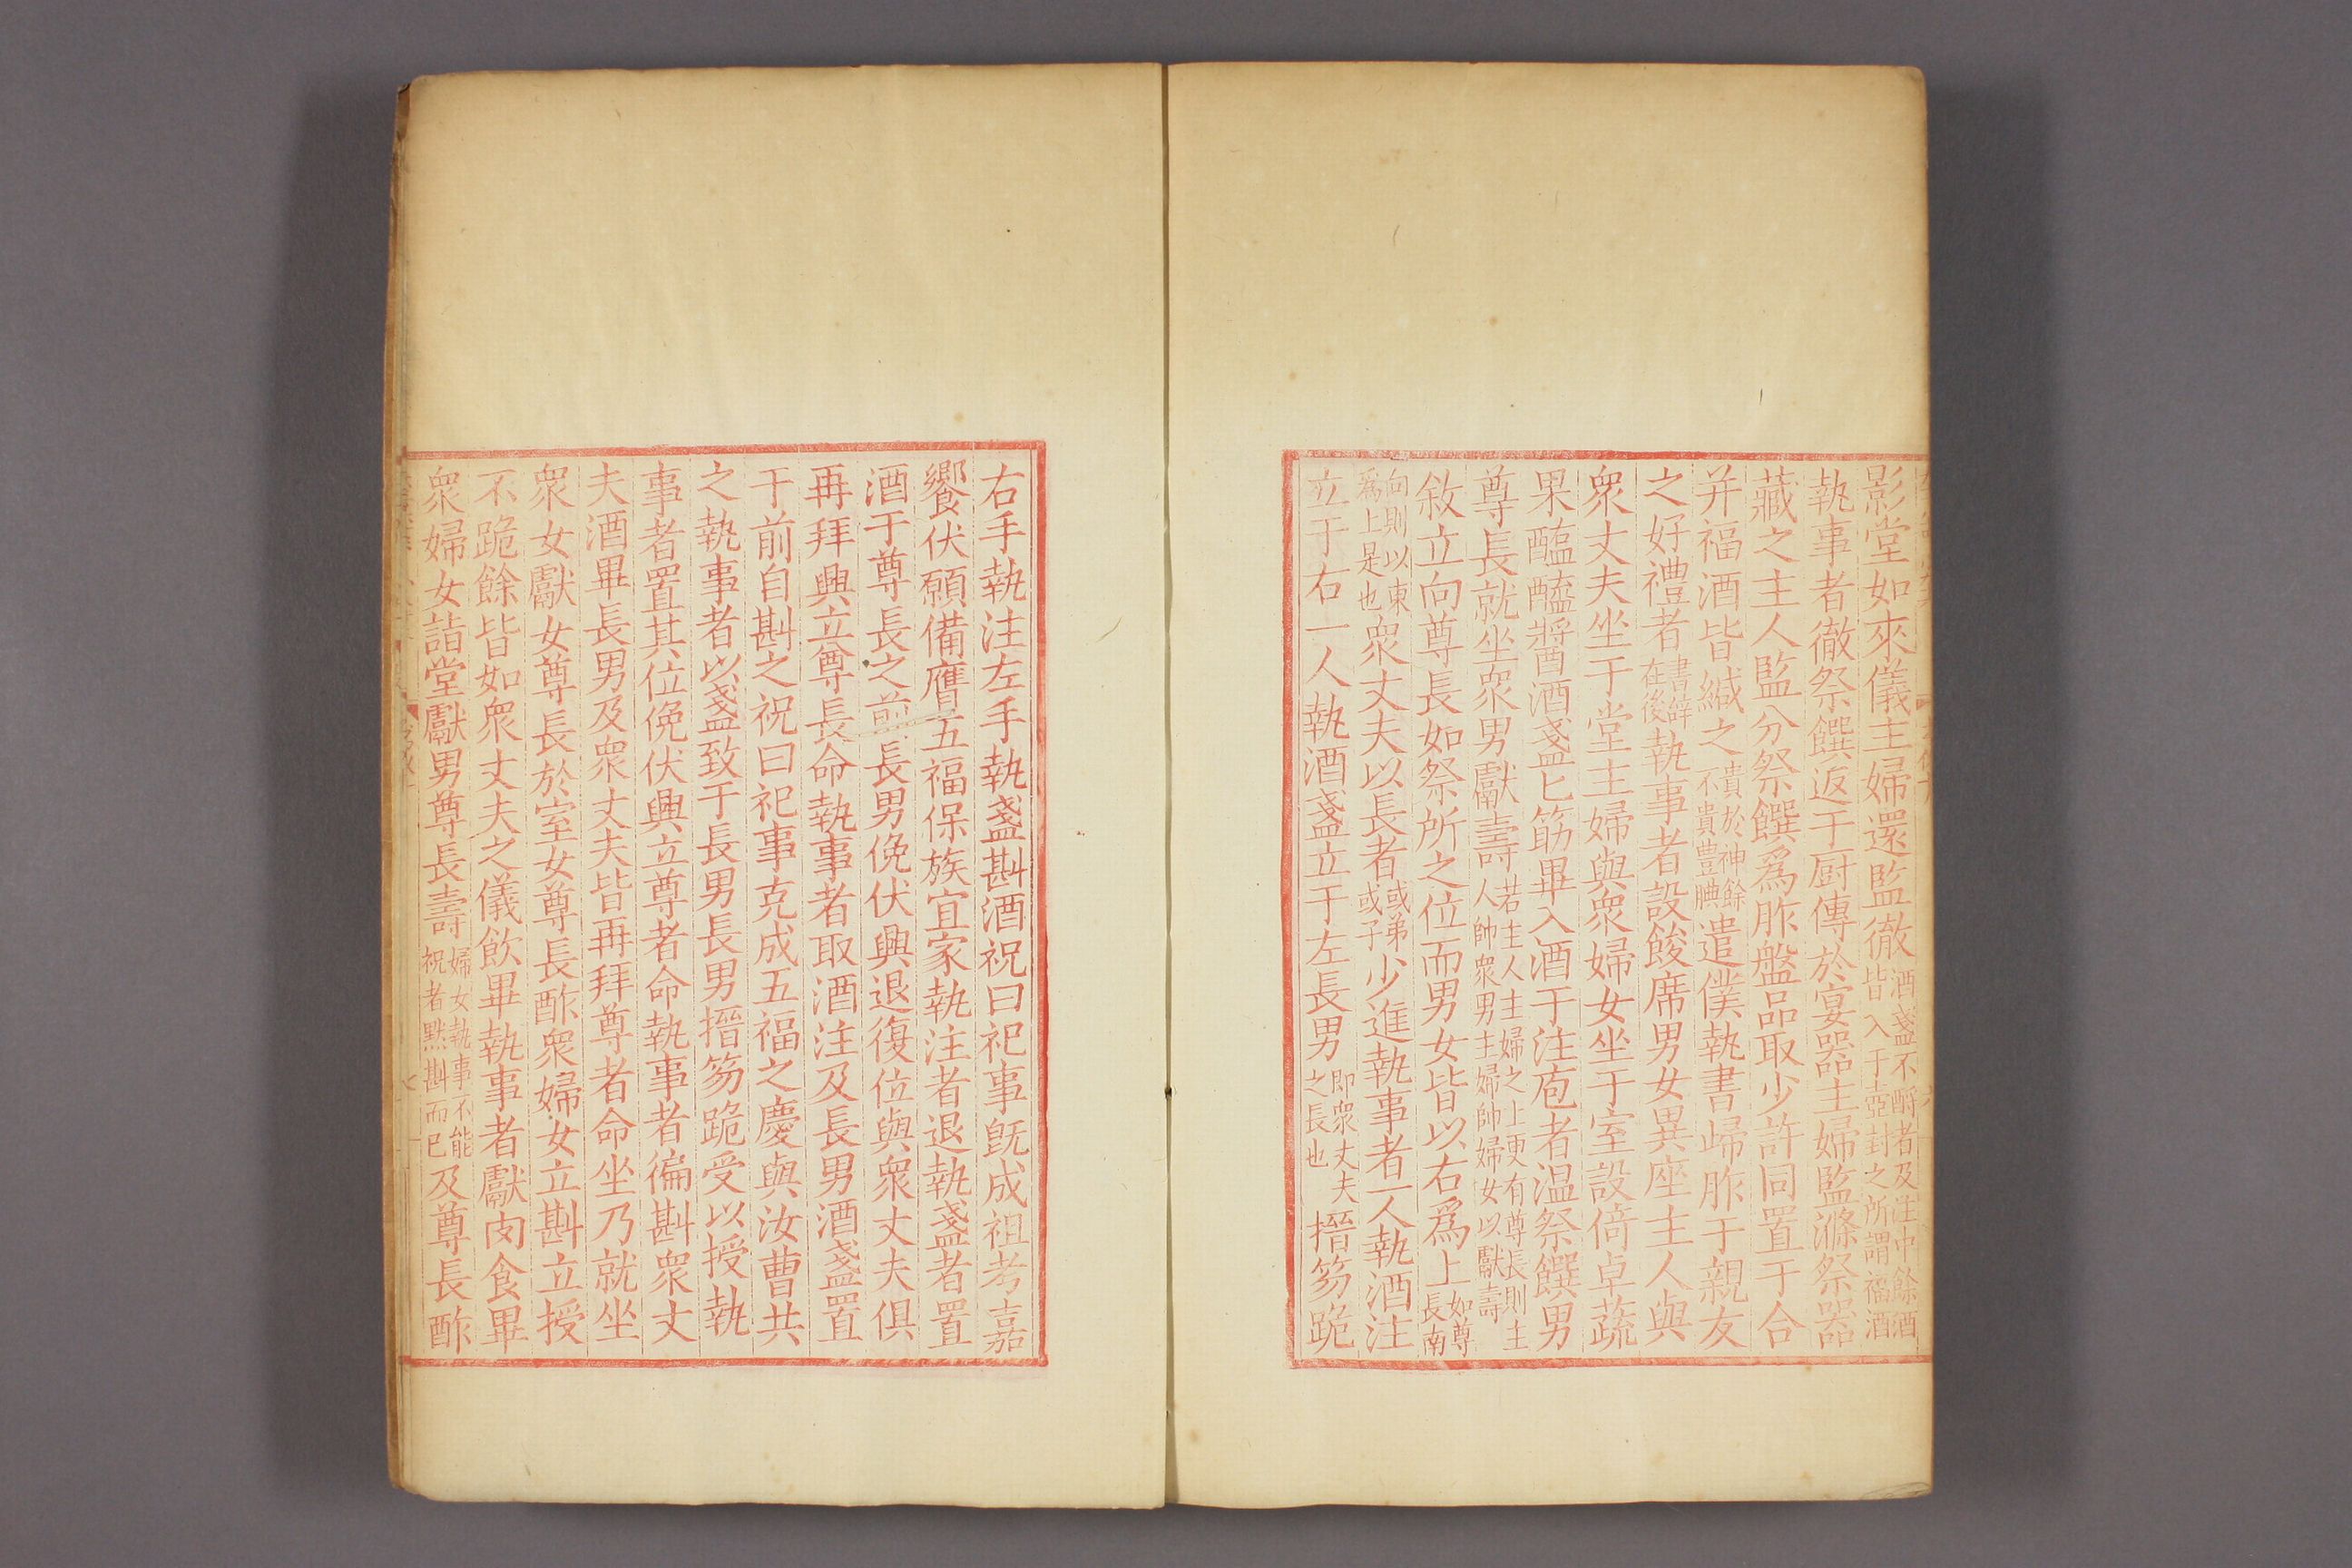 影堂如來儀主婦還監徹酒盞不酹者及注中餘酒皆入于壺封之所謂福酒
執事者徹祭饌返于厨傳於宴器主婦監滌祭器
藏之主人監分祭饌爲胙盤品取少許同置于合
并福酒皆緘之貴於神餘不貴豊腆遣僕執書歸胙于親友
之好禮者書辭在後執事者設餕席男女異座主人與
衆丈夫坐于堂主婦與衆婦女坐于室設倚卓蔬
果醢醯醬酒盞匕筯畢入酒于注庖者温祭饌男
尊長就坐衆男獻壽若主人主婦之上更有尊長則主人帥衆男主婦帥婦女以獻壽
敘立向尊長如祭所之位而男女皆以右爲上如尊長南
向則以東爲上是也衆丈夫以長者或弟或子少進執事者一人執酒注
立于右一人執酒盞立于左長男即衆丈夫之長也搢笏跪
右手執注左手執盞斟酒祝曰祀事旣成祖考嘉
饗伏願備膺五福保族宜家執注者退執盞者置
酒于尊長之前長男俛伏興退復位與衆丈夫俱
再拜興立尊長命執事者取酒注及長男酒盞置
于前自斟之祝曰祀事克成五福之慶與汝曹共
之執事者以盞致于長男長男搢笏跪受以授執
事者置其位俛伏興立尊者命執事者徧斟衆丈
夫酒畢長男及衆丈夫皆再拜尊者命坐乃就坐
衆女獻女尊長於室女尊長酢衆婦女立斟立授
不跪餘皆如衆丈夫之儀飲畢執事者獻肉食畢
衆婦女詣堂獻男尊長壽婦女執事不能祝者黙斟而已及尊長酢